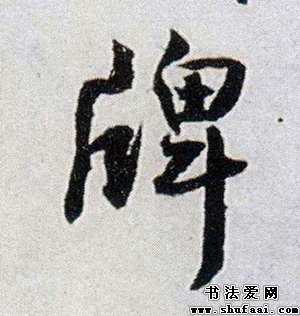 牌
书法爱网
www.shufaai.com